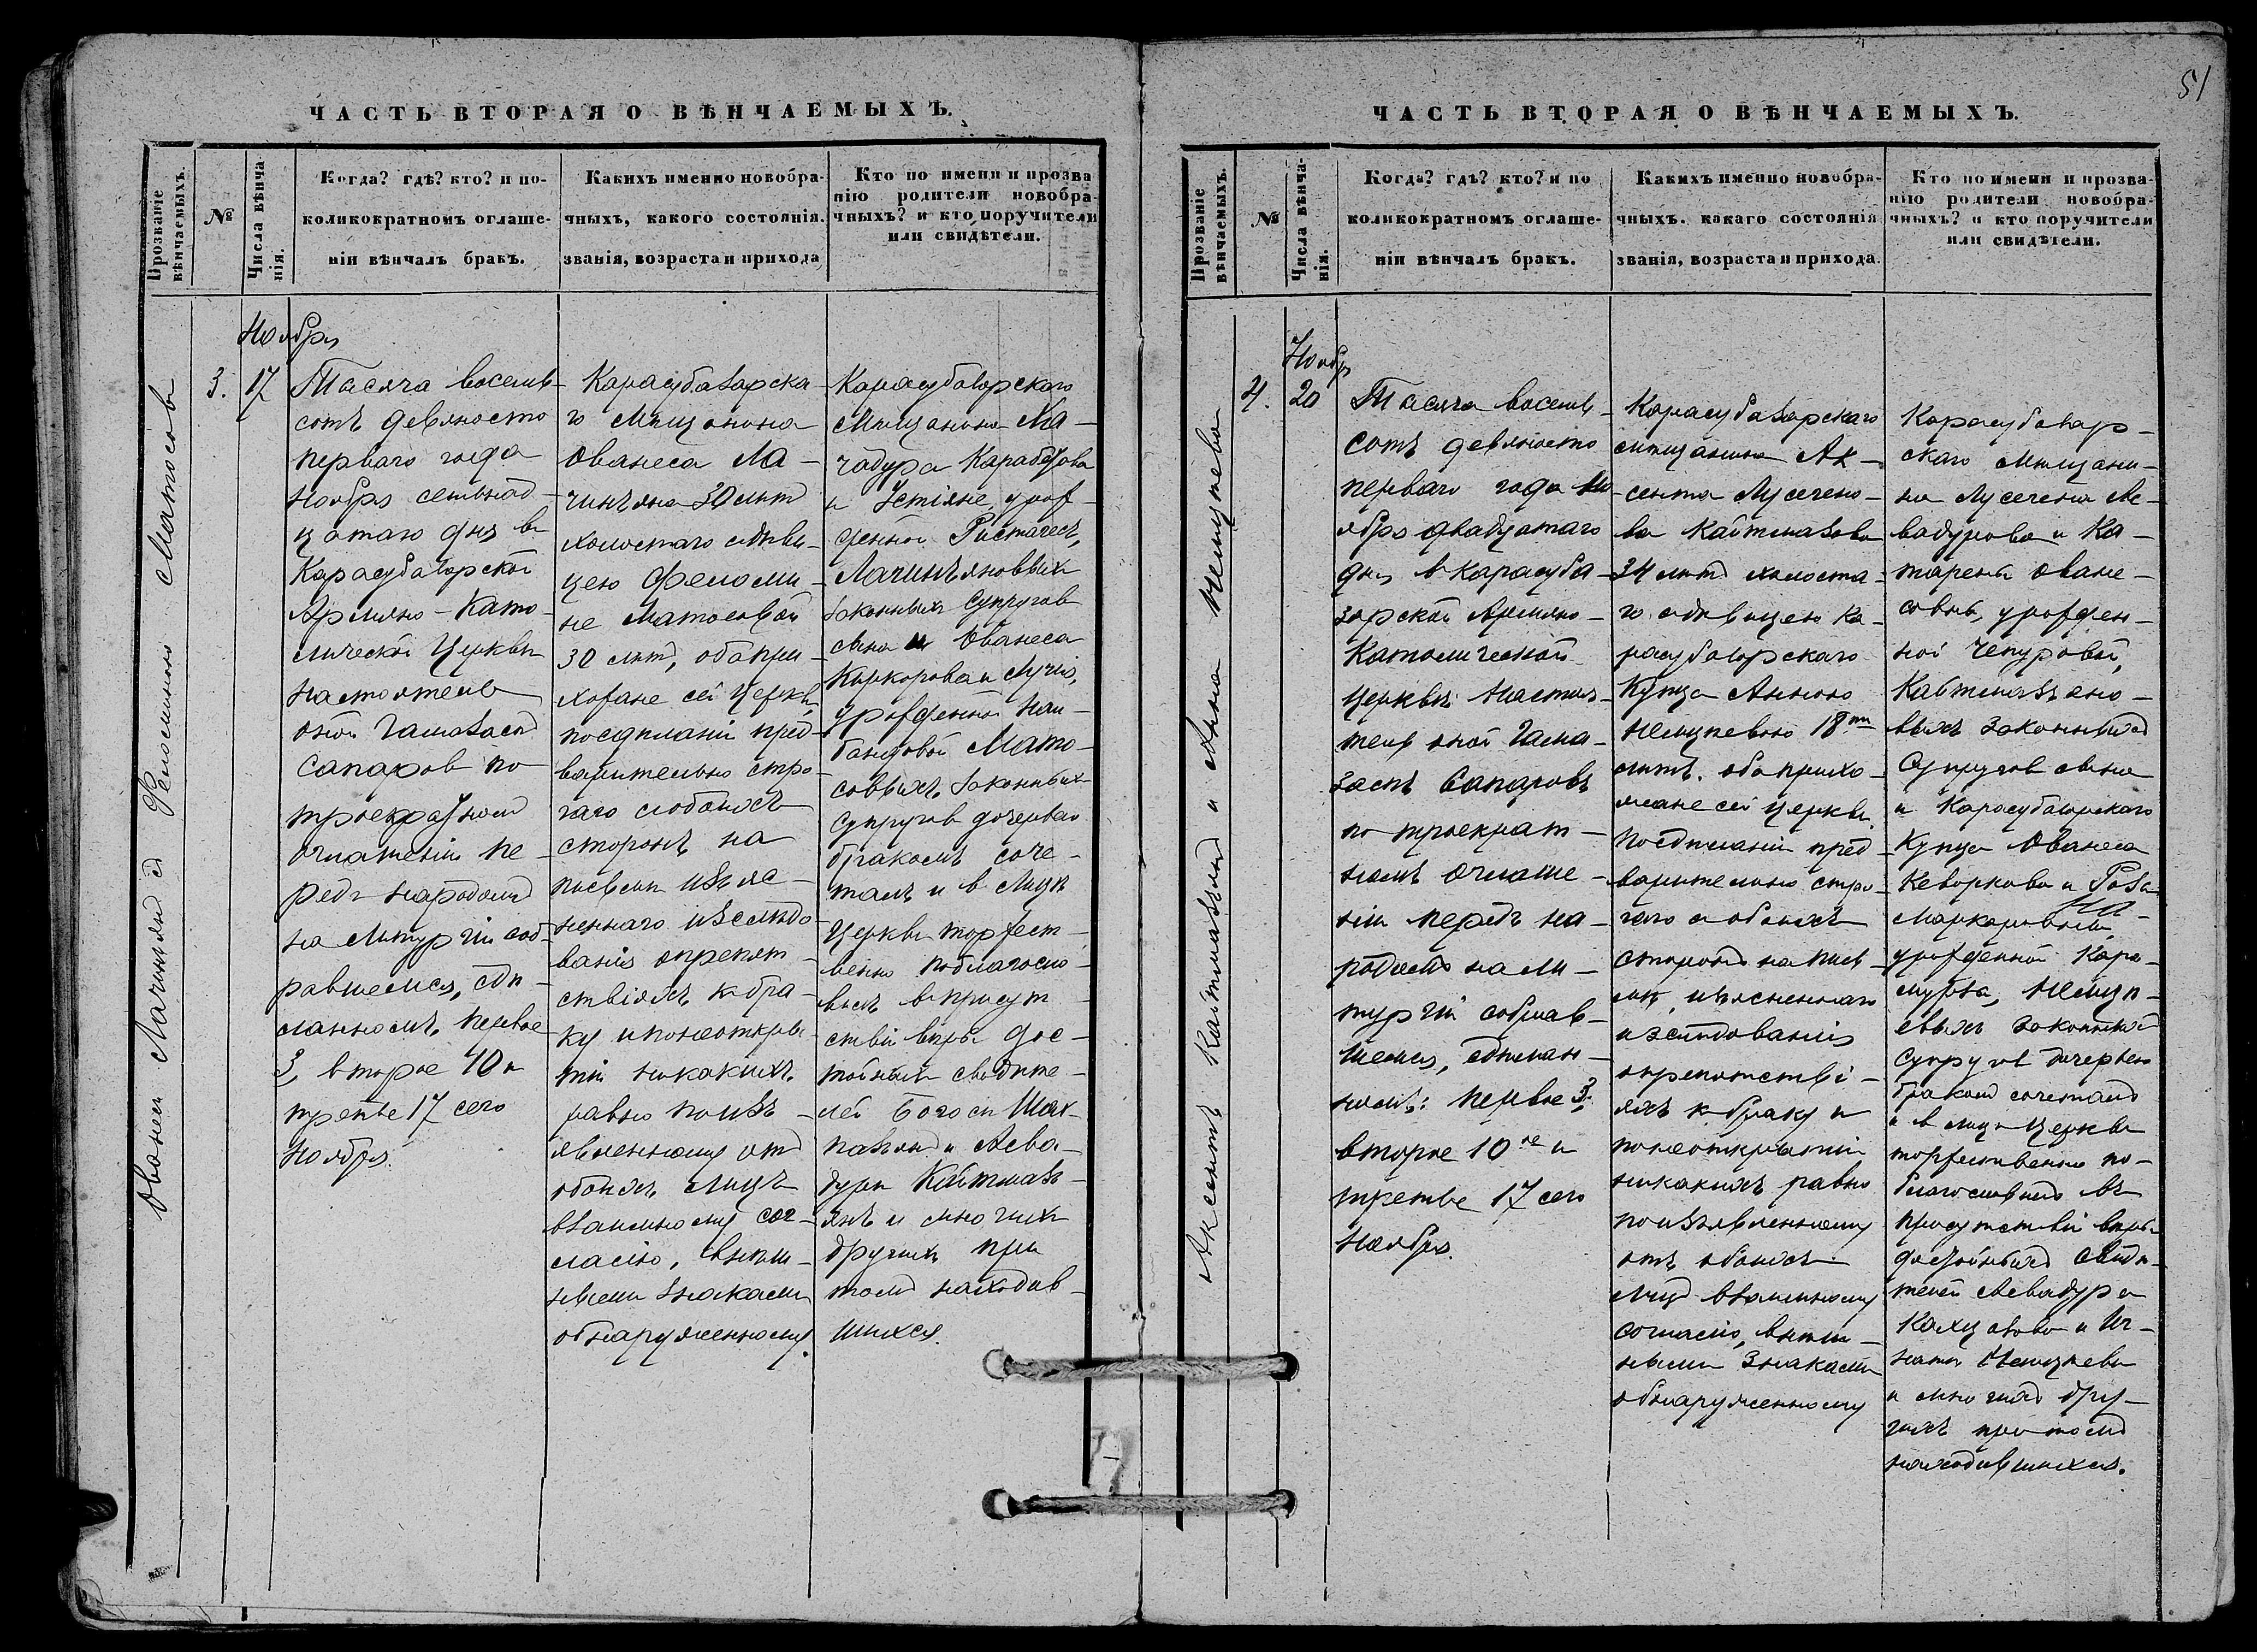 ЧАСТЬ ВТОРАЯ О ВѢНЧАЕМЫХЪ.
Прозваніе вѣнчаемыхъ.
№
Числа вѣнча-
нія.
Когда? гдѣ? кто? и по-
коликократномъ оглаше-
ніи вѣнчалъ бракъ.
Какихъ именно новобра-
чныхъ, какого состоянія.
званія, возраста и прихода
Кто по имени и прозва
нію родители новобра-
чныхъ? и кто поручители
или свидѣтели.
Ованесъ Лачинянъ съ Феломиною Матосовъ
3.
Ноябрь
17
Тысяча восемь-
сотъ девяносто
перваго года
Ноября семьнад-
цатаго дня въ
Карасубазарской
Армяно-Като-
лической Церкви
настоятель
оной Гамазаспъ
Сапаровъ по
троекратномъ
оглашеніи пе-
редъ народомъ
на Литургіи соб-
равшемся, сдѣ-
ланномъ, первое
3, второе 10 и
третье 17 сего
Ноября.
Карасубазарска-
го Мѣщанина
Ованеса Ла-
чиняна 30 лѣтъ
холостаго съдѣви-
цею Феломи-
не Матосовой
30 лѣтъ, оба при-
хожане сей Церкви,
поедѣланіи пред-
варительно стро-
гаго собоихъ
сторонъ на
писъмѣ изъяс-
неннаго изслѣдо-
ванія опрепят-
ствіяхъ къ бра-
ку и понеоткры-
тіи никакихъ
равно по изъ-
явленному отъ
обоихъ лицъ
взаимному сог-
ласію, внѣш-
ными знаками
обнаруженному.
Карасубазарскаго
Мѣщанина
чадура Карабетова
и Устіяне, урож-
денной
Лачиняновыхъ
законныхъ Супруговъ
сына и Ованеса
Киркорова и Лучіи,
урожденной
Мато-
совыхъ законныхъ
Супруговъ дочерью
бракомъ соче-
талъ и въ лицѣ
Церкви торжест-
венно поблагосло-
вилъ въ присут-
ствіи вѣры дос-
тойныхъ свидѣте-
лей Богосъ Шах-
пазянъ и Асва-
дуръ Кайтмаз-
янъ и многихъ
другихъ при
томъ находив-
шихся.
51
ЧАСТЬ ВТОРАЯ О ВѢНЧАЕМЫХЪ.
Прозваніе вѣнчаемыхъ.
№
Числа вѣнча-
нія.
Когда? гдѣ? кто? и по
коликократномъ оглаше-
ніи вѣнчалъ бракъ.
Какихъ именно новобра-
чныхъ. какаго состоянія
званія, возраста и прихода.
Кто по имени и прозва-
нію родители новобра-
чныхъ? и кто поручители
или свидѣтели.
Аксентъ Кайтмазянъ и Анна
4.
Ноябрь
20
Тысяча восемь-
сотъ девяносто
перваго года Но-
ября двадцатаго
дня въ Карасуба-
зарской Армяно-
Католической
Церкви Настоя-
тель оной Гама-
заспъ Сапаровъ
по троекрат-
номъ оглаше-
ніи передъ на-
родомъ на Ли-
тургіи собрав-
шемся, сдѣлан-
номъ: первое 3,
второе 10ое и
третье 17 сего
Ноября.
Карасубазарскаго
мѣщанина Ак-
сента Лусегено-
ва Кайтмазова
34 лѣтъ холоста-
го съдѣвицею Ка-
расубазарскаго
Купца Анною
18ти
лѣтъ. оба прихо-
жане сей церкви.
Поедѣланіи пред-
варительно стро-
гаго собоихъ
сторонъ на пись-
мѣ, изъясненнаго
изслѣдованія
опрепятстві-
яхъ къ браку и
понеоткрытіи
никакихъ равно
по изъявленному
отъ обоихъ
лицъ взаимному
согласію, внѣш-
ными знаками
обнаруженному
Карасубазар-
скаго мѣщани-
на Лусегена Ас-
вадурова и Ка-
тарены Ована-
совны, урожден-
ной Чепуровой,
Кайтмазяно-
выхъ законныхъ
Супруговъ сына
и Карасубазарскаго
Купца Ованеса
Кеворкова и Роза-
ліи
Маркаровны
урожденной
законныхъ
Супруговъ дочерью
бракомъ сочеталъ
и въ лицѣ Церкви
торжественно по-
благословилъ въ
присутствіи вѣры
достойныхъ свидѣ-
телей Асвадура
и Иг-
натія
и многихъ дру-
гихъ притомъ
находившихся.